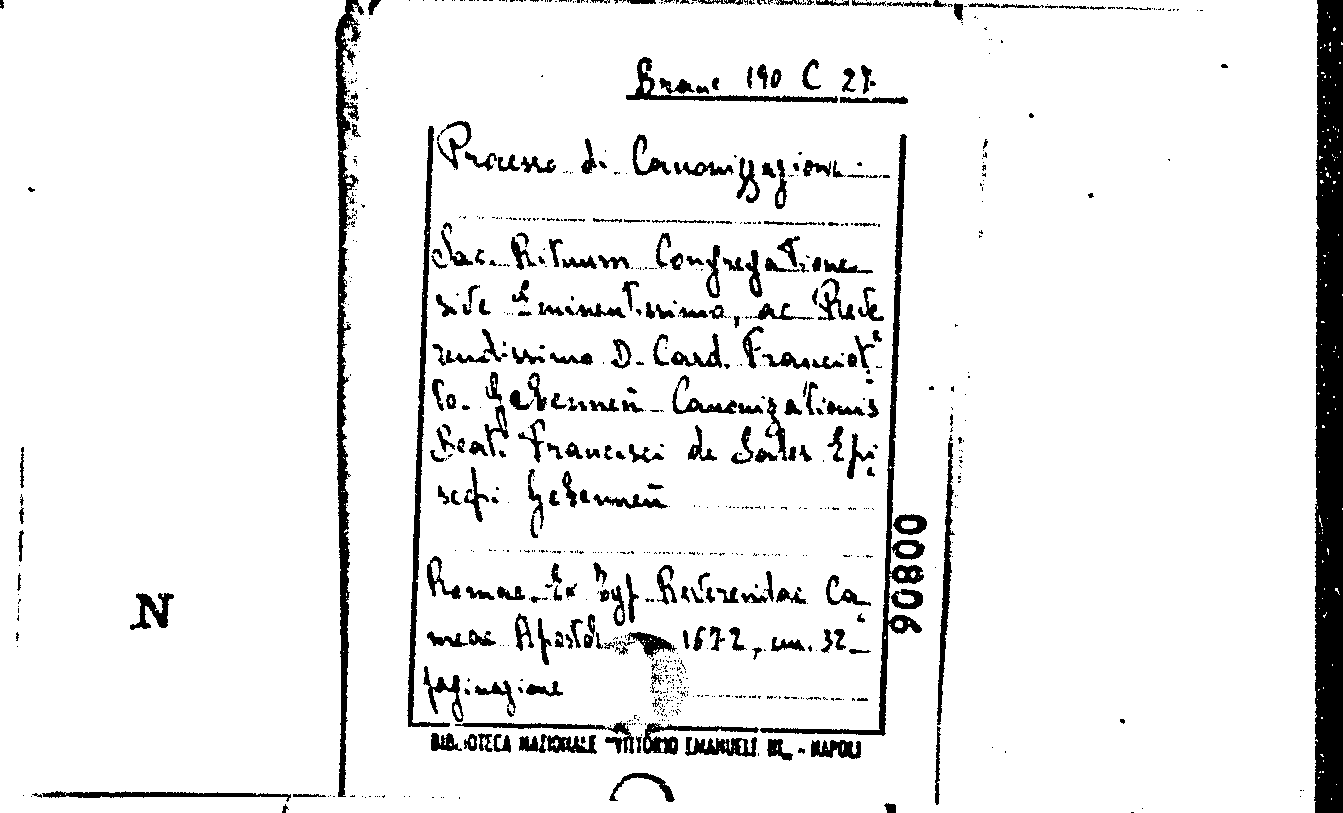 Branc 190 C 27
Processo di Canonizzazione
Sac. Rituum Congregatione
sive Eminentissimo, ac Reve
rendissimo D. Card. Franciot
to. Gebennen̄ Canonizationis
Beati Francisci de Sales Epi
scopi Gebennen̄
Romae. Ex Typ. Reverendae Ca
merae Apostol 1672, cm. 32
paginazione
BIBLIOTECA NAZIONALE "VITTORIO EMANUELE III" - NAPOLI
00806
N